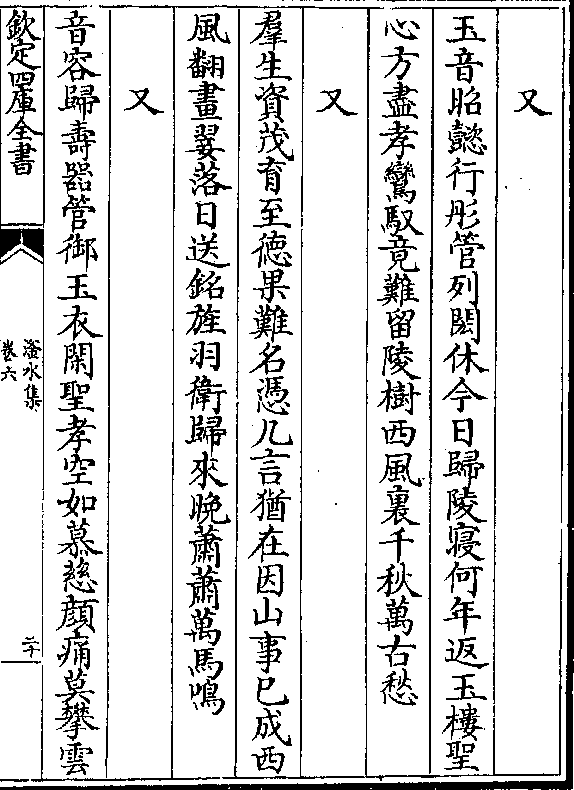 又
玉音昭懿行彤管列閎休今日歸陵寢何年返玉樓聖
心方盡孝鸞馭竟難留陵樹西風裏千秋萬古愁
又
羣生資茂育至徳果難名憑几言猶在因山事已成西
風翻畫翣落日送銘旌羽衛歸來晚蕭蕭萬馬鳴
又
音容歸壽器管御玉衣閑聖孝空如慕慈顔痛莫攀雲
欽定四庫全書
滏水集
卷六
二十